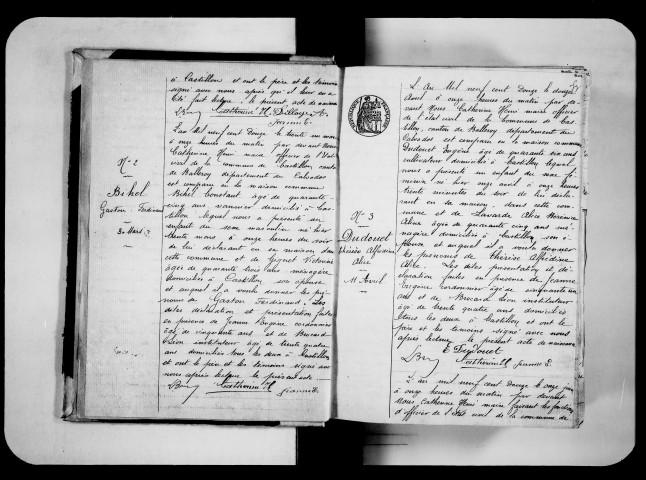 à Castillon et ont le père et les témoins
signé avec nous après qu'il leur en a
été fait lecture. le présent acte de naissance
Catherine H. Dillaye A.
Jeanne E.
N° 2
Bihel
Gaston Ferdinand
30 Mars
L'an Mil neuf cent Douze le trente un mars
à onze heures du matin par devant Nous
Catherine Henri maire officier de l'état
civil de la commune de Castillon, canton
de Balleroy département du Calvados
est comparu en la maison commune
Bihel Constant âgé de quarante
cinq ans domicilié à Cas-
tillon lequel nous a présenté un
enfant du sexe masculin né hier
trente mars à onze heures du soir
de lui déclarant en sa maison dans
cette commune et de Victorine
âgée de quarante trois ans ménagère
domiciliée à Castillon son épouse
et auquel il a voulu donner les pré-
noms de Gaston Ferdinand. Les
dites déclaration et présentation faites
en présence de Jeanne Eugène cordonnier
âgé de cinquante ans et de Brocard
Léon instituteur âgé de trente quatre
ans domiciliés tous les deux à Castillon
et ont le père et les témoins signé avec
nous après lecture le présent acte
Catherine H
Jeanne E.
N° 3
Dudouet
Thérèse Alfrédine
Alice
11 Avril
L'An Mil neuf cent Douze le douze
Avril à onze heures du matin par de-
vant Nous Catherine Henri maire officier
de l'état civil de la Commune de Cas-
tillon, canton de Balleroy département du
Calvados est comparu en la maison commune
Dudouet Eugène âgé de quarante six ans
cultivateur domicilié à Castillon lequel
nous a présenté un enfant du sexe fé-
minin né hier onze avril à onze heures
trente minutes du soir de lui décla-
rant en sa maison, dans cette com-
mune et de Lavarde Alice
âgée de quarante cinq ans mé-
nagère domiciliée à Castillon, son é-
pouse et auquel il a voulu donner
les prénoms de Thérèse Alfrédine
Alice. Les dites présentation et dé-
claration faites en présence de Jeanne
Eugène cordonnier âgé de cinquante
ans et de Brocard Léon instituteur
âgé de trente quatre ans domiciliés
tous les deux à Castillon et ont le
père et les témoins signé avec nous
après lecture le présent acte de naissance
E Dudouet
Catherine H Jeanne E.
L'an mil neuf cent Douze le onze juin
à onze heures du matin par devant
Nous Catherine Henri maire faisant les fonctions
d'officier de l'état civil de la commune de